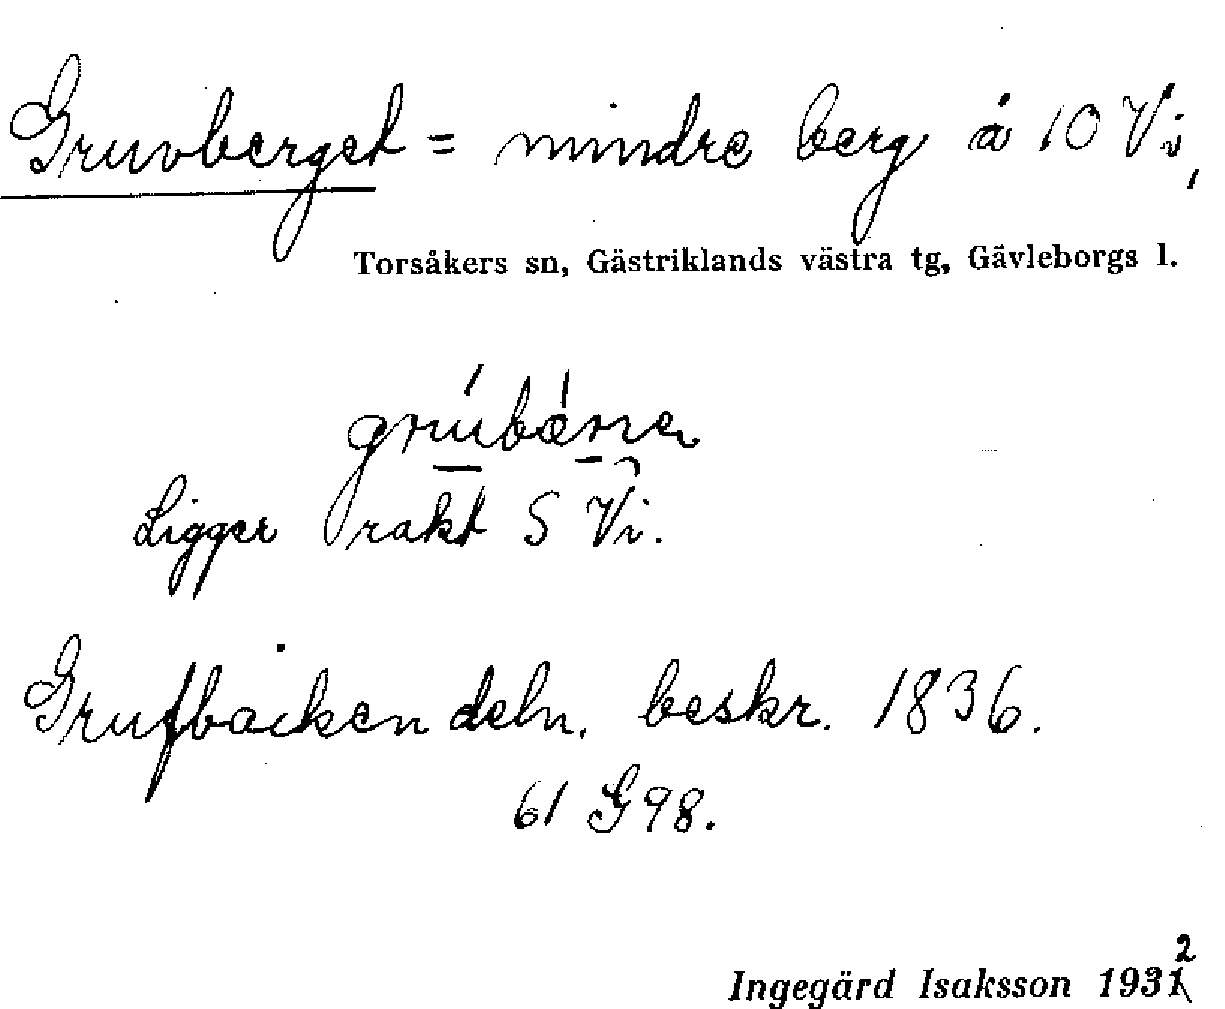 Gruvberget = mindre berg å 10 Vi,
Torsåkers sn, Gästriklands västra tg, Gävleborgs l.
Ligger rakt S Vi.
Grufbacken deln. beskr. 1836.
61 G 98.
Ingegärd Isaksson 1932